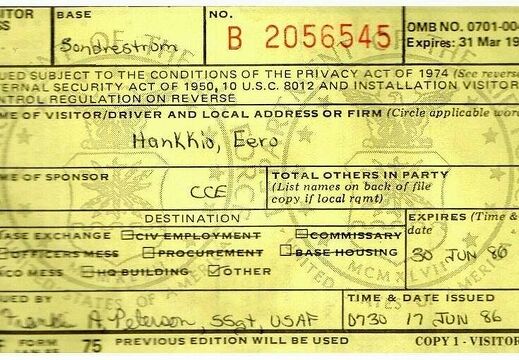 ITOR BASE NO. OMB NO. 0701-00
SS Sondrestrom B 2056545 Expires: 31 Mar 19
UED SUBJECT TO THE CONDITIONS OF THE PRIVACY ACT OF 1974 (See reverse
TERNAL SECURITY ACT OF 1950, 10 U.S.C. 8012 AND INSTALLATION VISITOR
NTROL REGULATION ON REVERSE
ME OF VISITOR/DRIVER AND LOCAL ADDRESS OR FIRM (Circle applicable wor
Hankkio, Eero
ME OF SPONSOR TOTAL OTHERS IN PARTY
CCE (List names on back of file
copy if local rqmt)
DESTINATION EXPIRES (Time &
ASE EXCHANGE CIV EMPLOYMENT COMMISSARY date
OFFICERS MESS PROCUREMENT BASE HOUSING 30 JUN 86
CO MESS HQ BUILDING OTHER
UED BY TIME & DATE ISSUED
Frankie A Peterson, SSgt, USAF 0730 17 JUN 86
FORM 75 PREVIOUS EDITION WILL BE USED COPY 1 - VISITOR